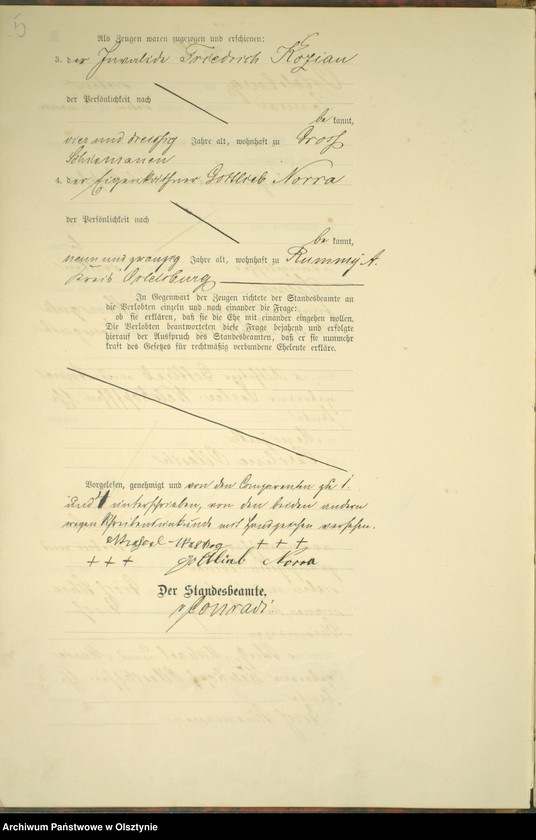 5
Als Zeugen waren zugezogen und erschienen:
3. der Invalide Friedrich Kozian
der Persönlichkeit nach
be kannt,
vier und dreißig Jahre alt, wohnhaft zu Groß
Schiemanen
4. der Eigenkäthner Gottlieb Norra
der Persönlichkeit nach
be kannt,
neun und zwanzig Jahre alt, wohnhaft zu Rummy A.
Kreis Ortelsburg
In Gegenwart der Zeugen richtete der Standesbeamte an
die Verlobten einzeln und nach einander die Frage:
ob sie erklären, daß sie die Ehe mit einander eingehen wollen.
Die Verlobten beantworteten diese Frage bejahend und erfolgte
hierauf der Ausspruch des Standesbeamten, daß er sie nunmehr
kraft des Gesetzes für rechtmäßig verbundene Eheleute erkläre.
Vorgelesen, genehmigt und von den Comparenten zu 1.
und 4 unterschrieben, von den beiden andern
wegen Schreibensunkunde mit Handzeichen versehen.
Michael +++
+++ Gottlieb Norra
Der Standesbeamte.
Conradi.
Archiwum Państwowe w Olsztynie